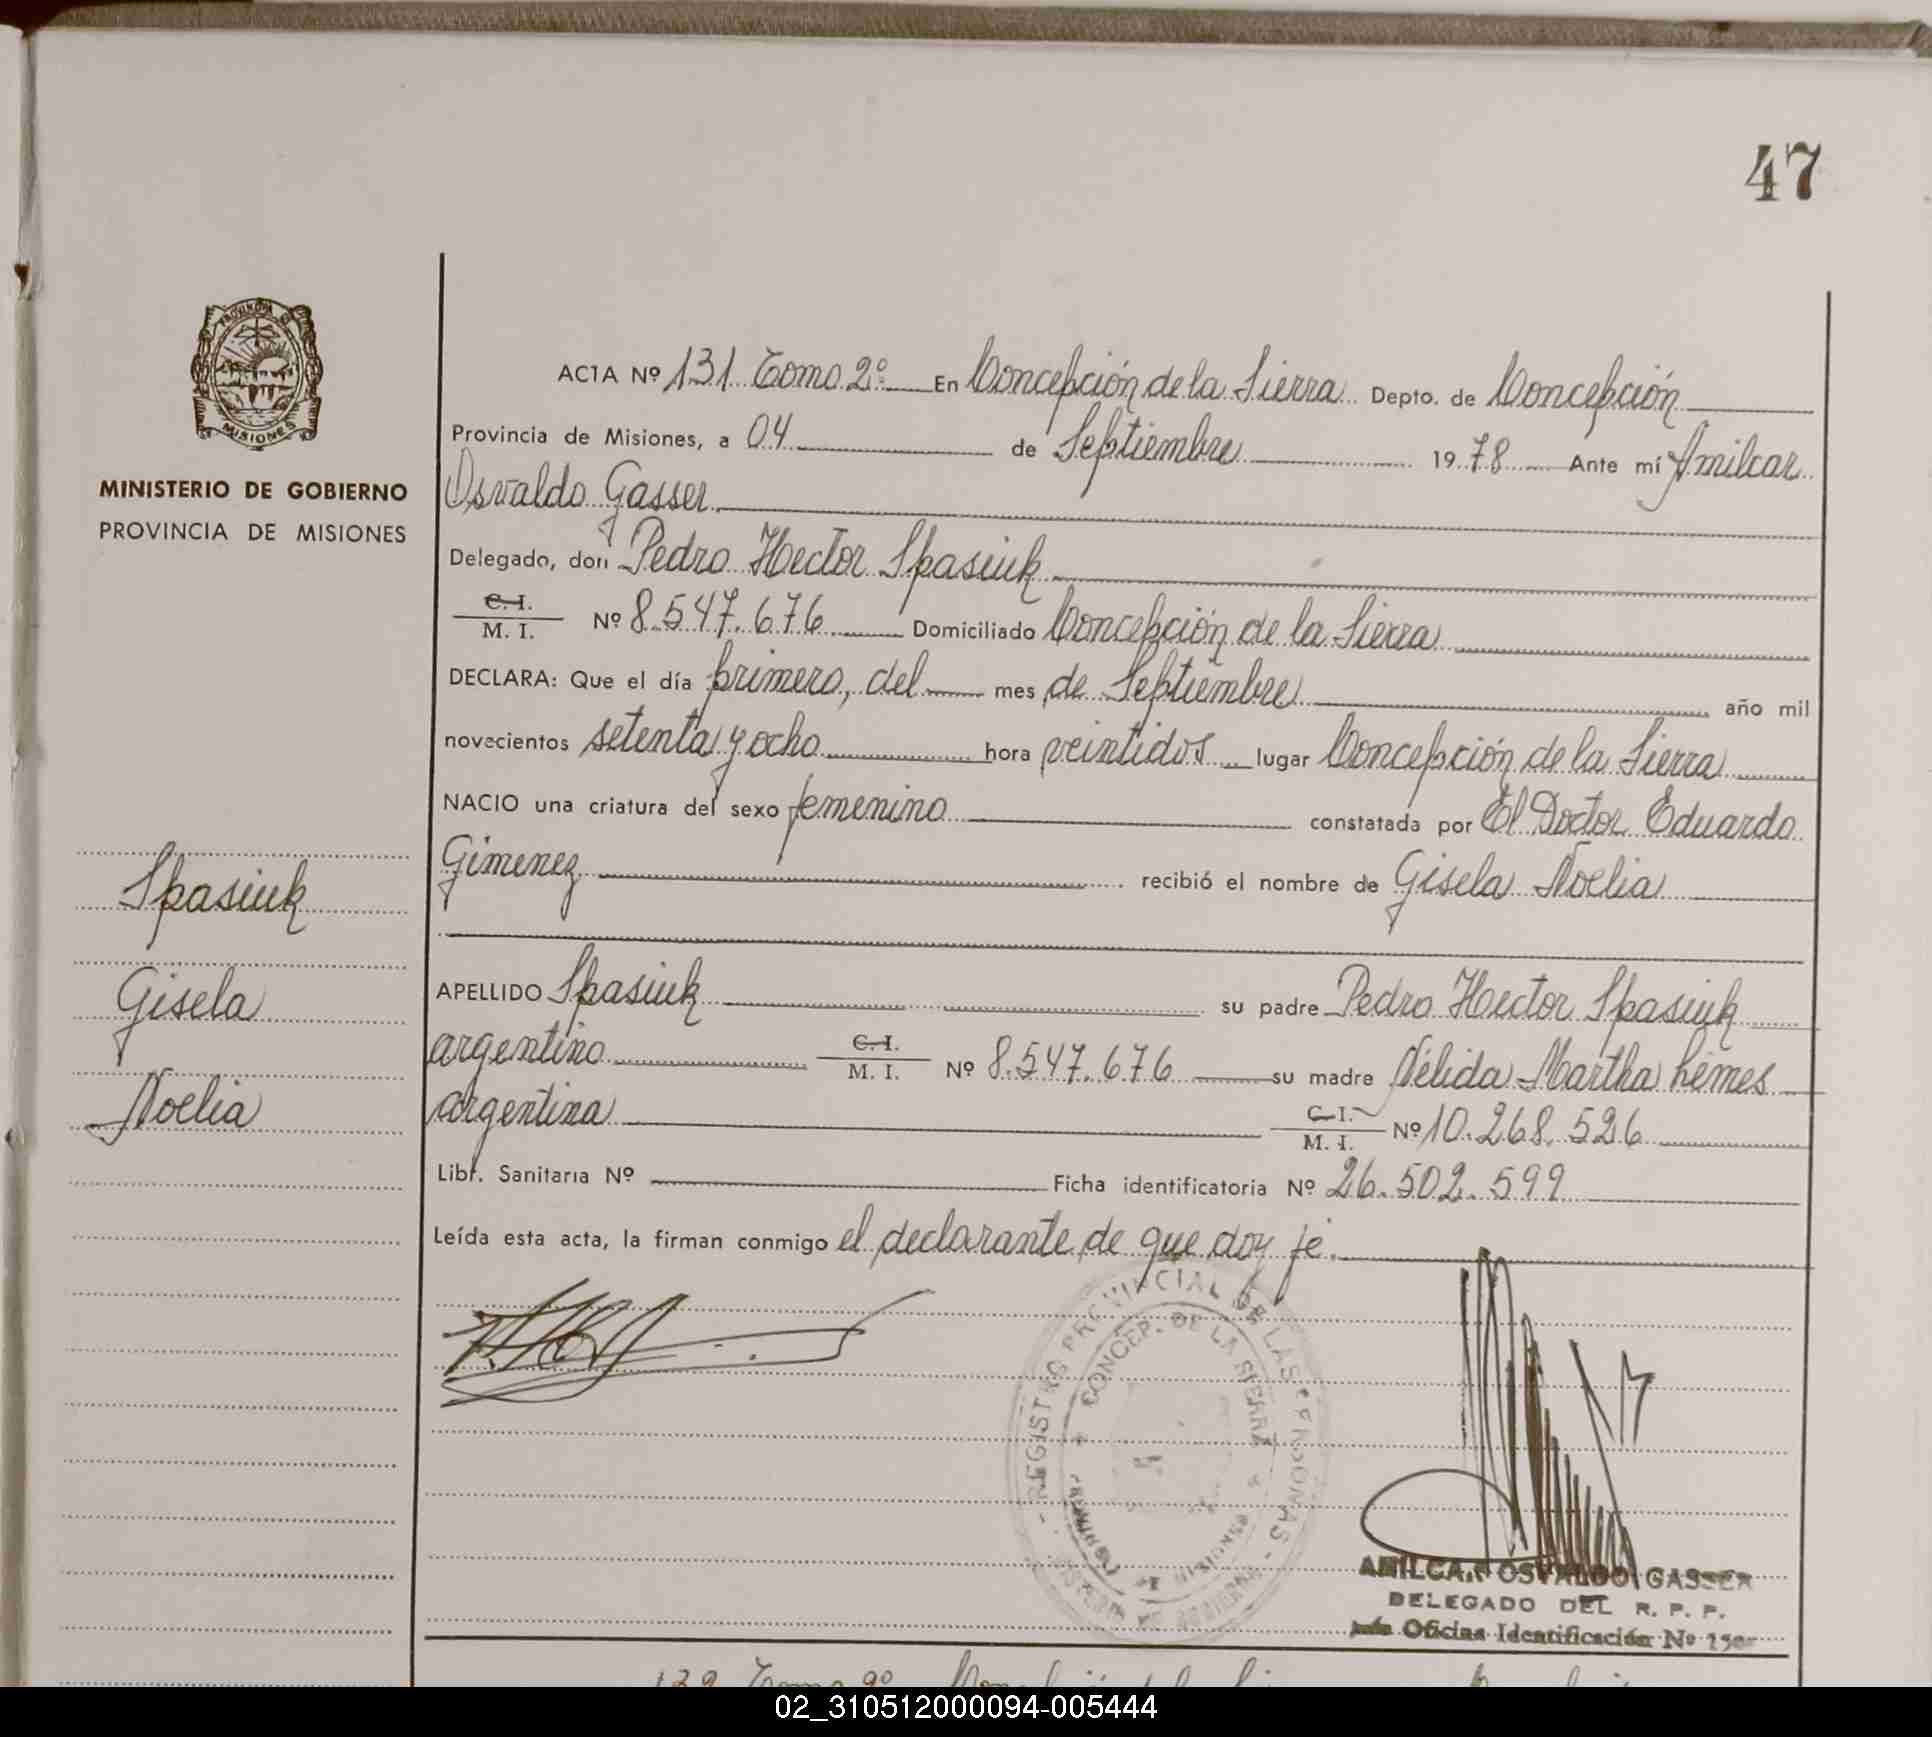 47
PROVINCIA DE
MISIONES
MINISTERIO DE GOBIERNO
PROVINCIA DE MISIONES
Spasiuk
Gisela
Noelia
ACTA Nº 131 Tomo 2º En Concepción de la Sierra Depto. de Concepción
Provincia de Misiones, a 04 de Septiembre 1978 Ante mí Amilcar
Osvaldo Gasser
Delegado, don Pedro Hector Spasiuk
C. I.
M. I. Nº 8.547.676 Domiciliado Concepción de la Sierra
DECLARA: Que el día primero, del mes de Septiembre año mil
novecientos setenta y ocho hora veintidos lugar Concepción de la Sierra
NACIO una criatura del sexo femenino constatada por El Doctor Eduardo
Gimenez recibió el nombre de Gisela Noelia
APELLIDO Spasiuk su padre Pedro Hector Spasiuk
argentino C. I. M. I. Nº 8.547.676 su madre Nélida Martha Lemes
argentina C. I. M. I. Nº 10.268.526
Libr. Sanitaria Nº Ficha identificatoria Nº 26.502.599
Leída esta acta, la firman conmigo el declarante de que doy fé.
REGISTRO PROVINCIAL DE LAS PERSONAS
CONCEP. DE LA SIERRA
MISIONES
AMILCAR OSVALDO GASSER
DELEGADO DEL R. P. P.
Oficina Identificación Nº
132 Tomo 2º
02_310512000094-005444